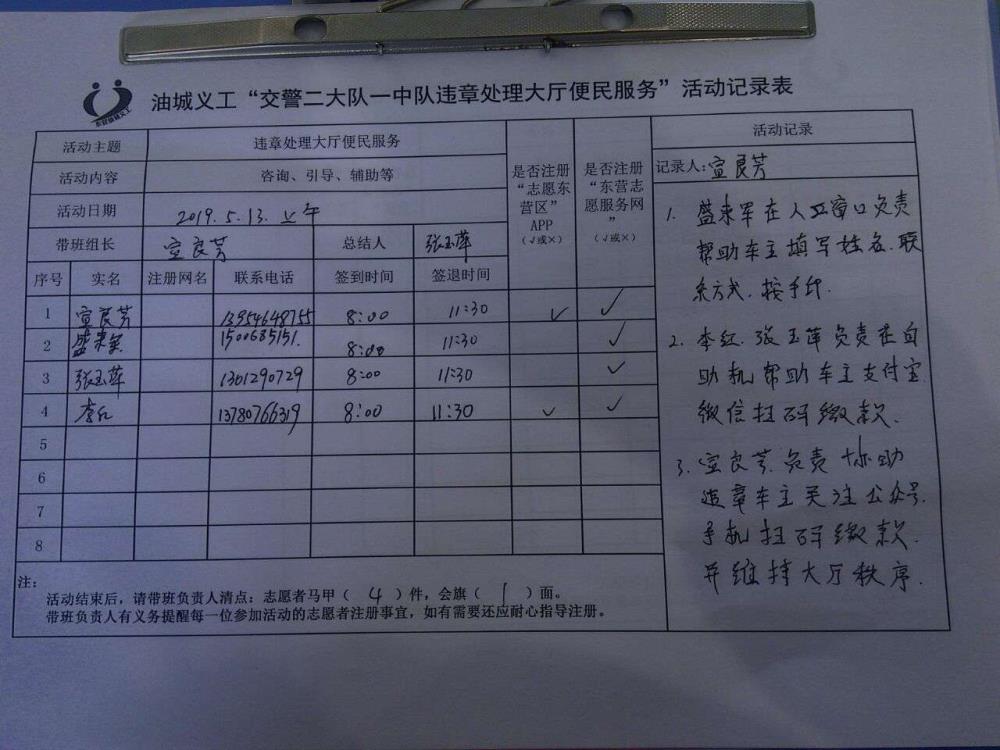 油城义工“交警二大队一中队违章处理大厅便民服务”活动记录表
活动主题 违章处理大厅便民服务
活动内容 咨询、引导、辅助等
活动日期 2019.5.13.上午
带班组长 宣良芳 总结人 张玉萍
序号 实名 注册网名 联系电话 签到时间 签退时间
是否注册
“志愿东
营区”
APP
(√或×)
是否注册
“东营志
愿服务网
”
(√或×)
1 宣良芳 13954648755 8:00 11:30 √ √
2 盛来军 1500685151. 8:00 11:30 √
3 张玉萍 1301290729 8:00 11:30 √
4 李红 13780766319 8:00 11:30 √ √
5
6
7
8
注:
活动结束后，请带班负责人清点：志愿者马甲（ 4 ）件，会旗（ 1 ）面。
带班负责人有义务提醒每一位参加活动的志愿者注册事宜，如有需要还应耐心指导注册。
活动记录
记录人:宣良芳
1. 盛来军在人工窗口负责
帮助车主填写姓名.联
系方式.按手印.
2. 李红.张玉萍负责在自
助机帮助车主支付宝
微信扫码缴款.
3. 宣良芳.负责协助
违章车主关注公众号.
手机扫码缴款.
并维持大厅秩序.